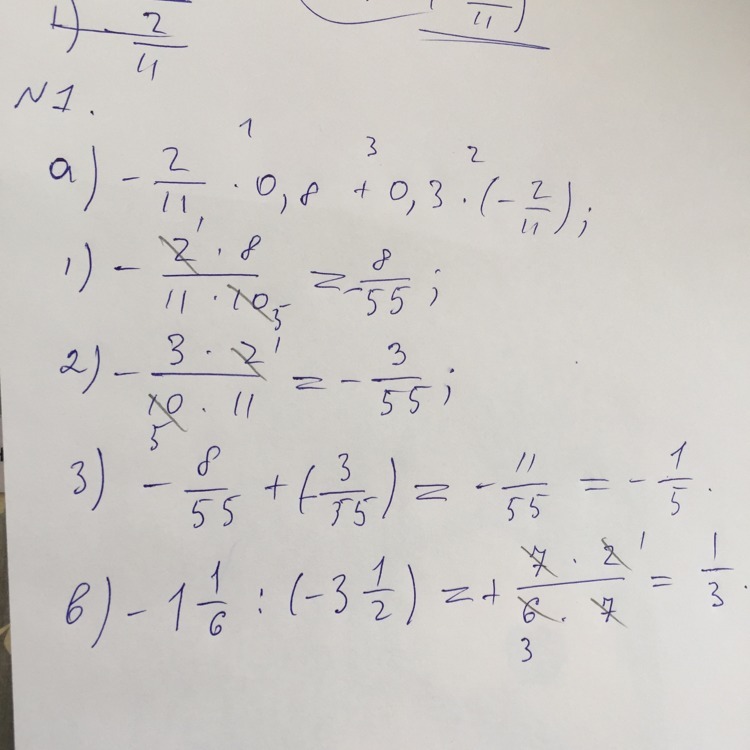 1) - 2/11
/11)
N 1.
1 3 2
a) - 2/11 · 0,8 + 0,3 · (- 2/11);
1) - 2 · 8 / 11 · 10 = - 8/55;
1 5
2) - 3 · 2 / 10 · 11 = - 3/55;
1 5
3) - 8/55 + (- 3/55) = - 11/55 = - 1/5.
в) - 1 1/6 : (- 3 1/2) = + 7 · 2 / 6 · 7 = 1/3.
1 3